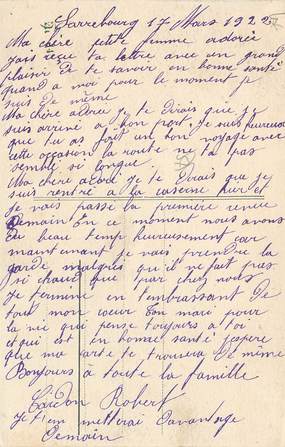 Sarrebourg 17 Mars 1922
Ma chère petite femme adorée
Jais reçue ta lettre avec un grand
plaisir de te savoir en bonne santé
quand a moi pour le moment je
suis de même
Ma chère adrée je te dirais que je
suis arrivé a bon port, je suis heureuse
que tu as fait un bon voyage avec
cette occasion la route ne ta pas
semblé si longue.
Ma chère adrée je te dirais que je
suis rentré a la caserne hier et
je vais passé la première revue
demain En ce moment nous avons
du beau temp heureusement car
maintenant je vais prendre la
garde malgrés qu'il ne fait pas
si chaud que par chez nous
Je termine en t'embrassant de
tout mon coeur Ton mari pour
la vie qui pense toujours a toi
et qui est en bonne santé j'espère
que ma carte te trouvera de même
Bonjours a toute la famille
Robert
Je t'en metterai davantage
demain